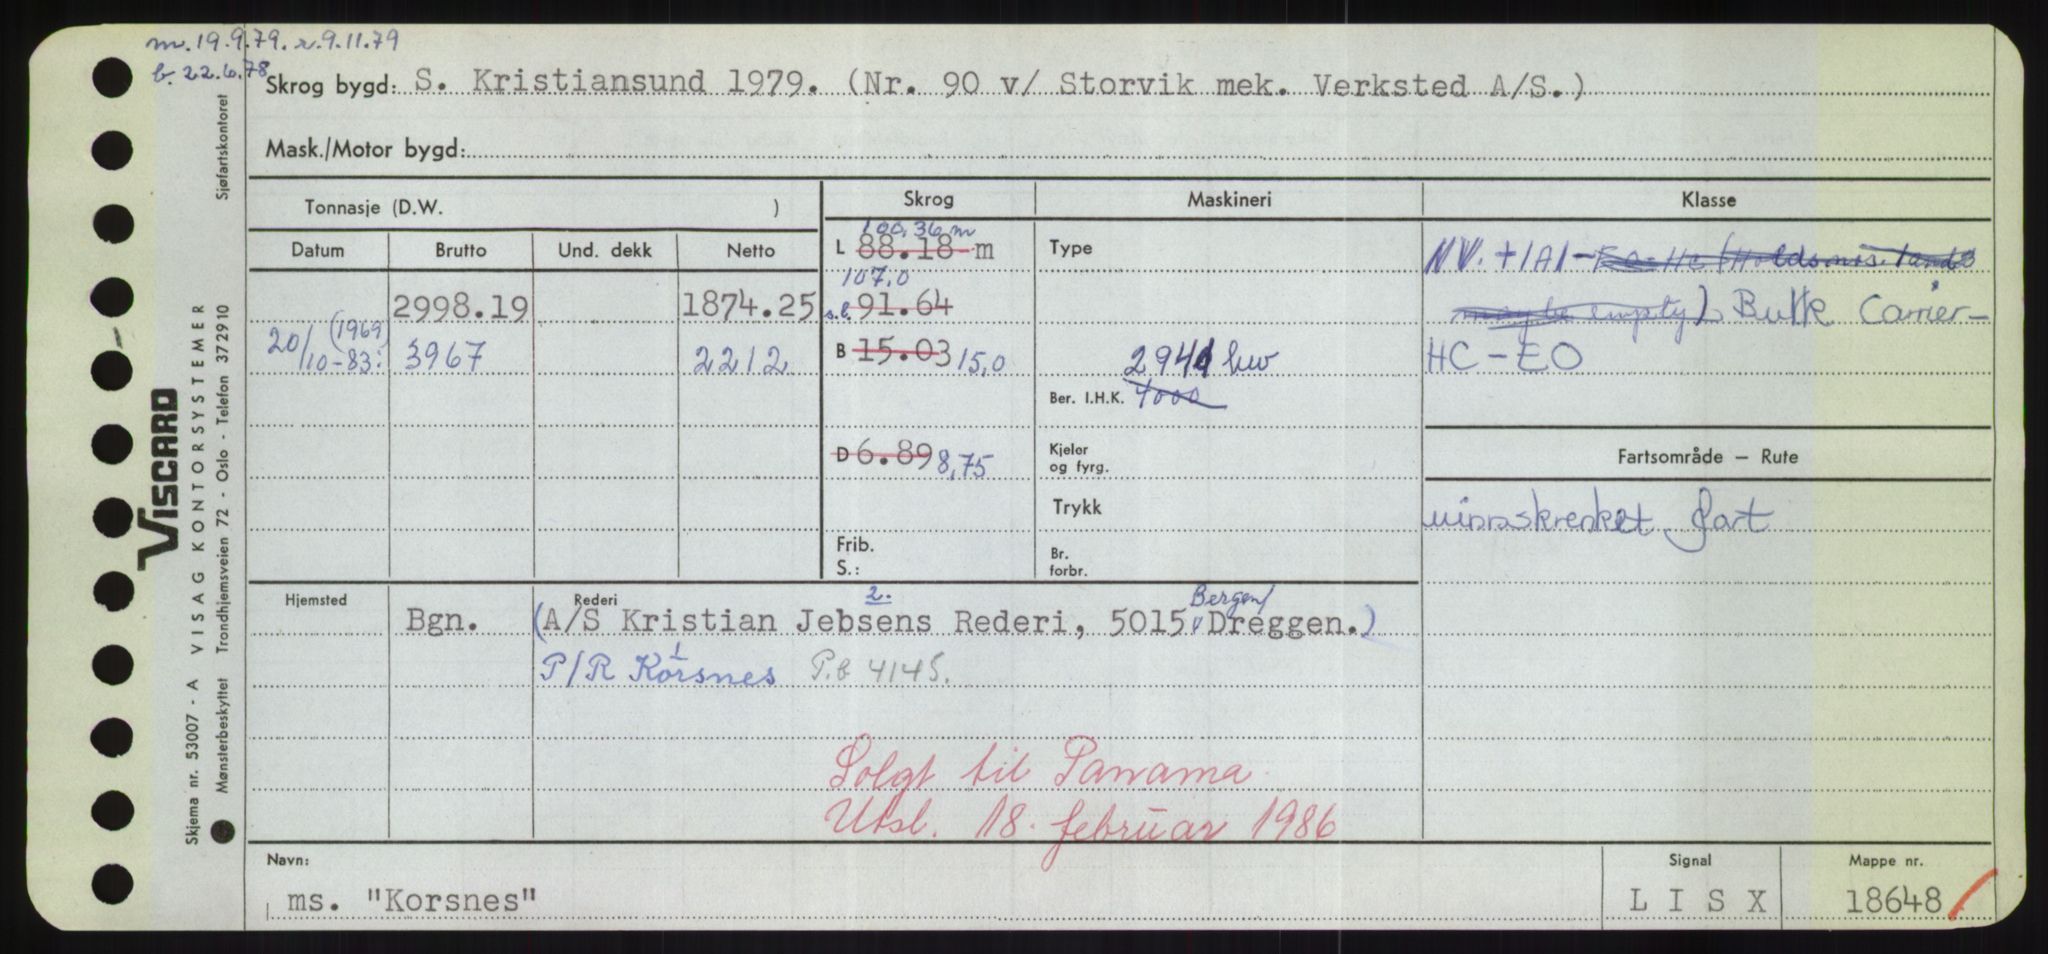 m. 19.9.79. r. 9.11.79
b. 22.6.78
Skrog bygd: S. Kristiansund 1979. (Nr. 90 v/ Storvik mek. Verksted A/S.)
Mask./Motor bygd:
Tonnasje (D.W. )
Skrog
Maskineri
Klasse
Datum
Brutto
Und. dekk
Netto
100,36 m
L 88.18 m
Type
NV. +1A1 - EO-HC (Holds nos. 1 and 3
107,0
2998.19
1874.25
s.l. 91.64
may be empty) Bulk Carrier-
20/10-83: (1969)
3967
2212
B 15.03 15,0
2941 kw
HC - EO
Ber. I.H.K. 4000
D 6.89 8,75
Kjeler
og fyrg.
Fartsområde – Rute
Trykk
uinnskrenket fart
Frib.
S.:
Br.
forbr.
Hjemsted
Rederi
2.
Bergen/
Bgn.
(A/S Kristian Jebsens Rederi, 5015 Dreggen.)
1
P/R Korsnes P.b 4145.
Solgt til Panama
Utsl. 18. februar 1986
Navn:
Signal
Mappe nr.
ms. "Korsnes"
L I S X
18648
VISCARD
Skjema nr. 53007 - A VISAG KONTORSYSTEMER
Mønsterbeskyttet Trondhjemsveien 72 - Oslo - Telefon 372910 Sjøfartskontoret